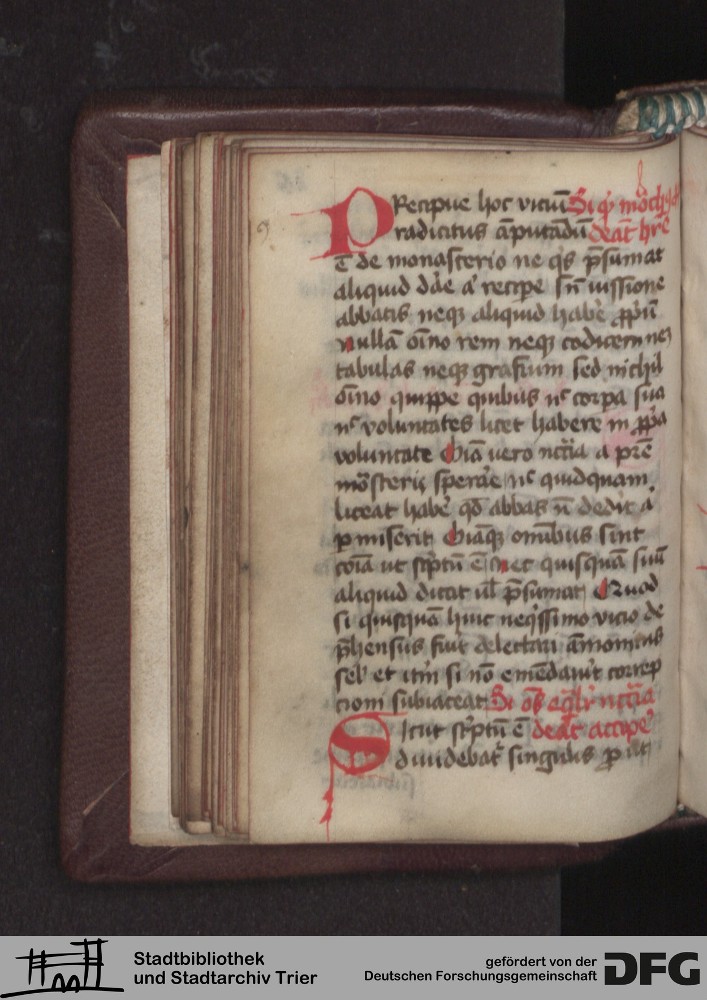 PRecipue hoc viciū Si qͥ mōchi
radicitus āputādū deāt hr̄e
ē de monasterio ne qͥs p̄sumat
aliquid dāe aͭ recipe sn̄ iussione
abbatis neqꝫ aliquid habē ꝓpͥū
nullā oīno rem neqꝫ codicem neqꝫ
tabulas neqꝫ grafium sed nichil
oīno quippe quibus nͨ corpa sua
nͨ voluntates licet habere in ꝓpͥa
voluntate Oīa vero nccͥia a pr̄e
mōsterij sperāe nͨ quidquam
liceat habē qd̄ abbas n̄ dedit aͭ
ꝑmiserit Oīaqꝫ omībus sint
coīa ut scͥptū ē nec quisquā suū
aliquid dicat ul̄ p̄sumat Quod
si quisquā huic neqͥssimo vicio de
p̄hensus fuͥt delectari āmoneatͬ
sel̄ et itm̄ si nō emēdauͥt correp
cioni subiaceat Si oēs eql̄r nccͥia
Sicut scͥptū ē deāt accipe
diuidebatͬ singulis ꝓut
Stadtbibliothek
und Stadtarchiv Trier
gefördert von der
Deutschen Forschungsgemeinschaft
DFG